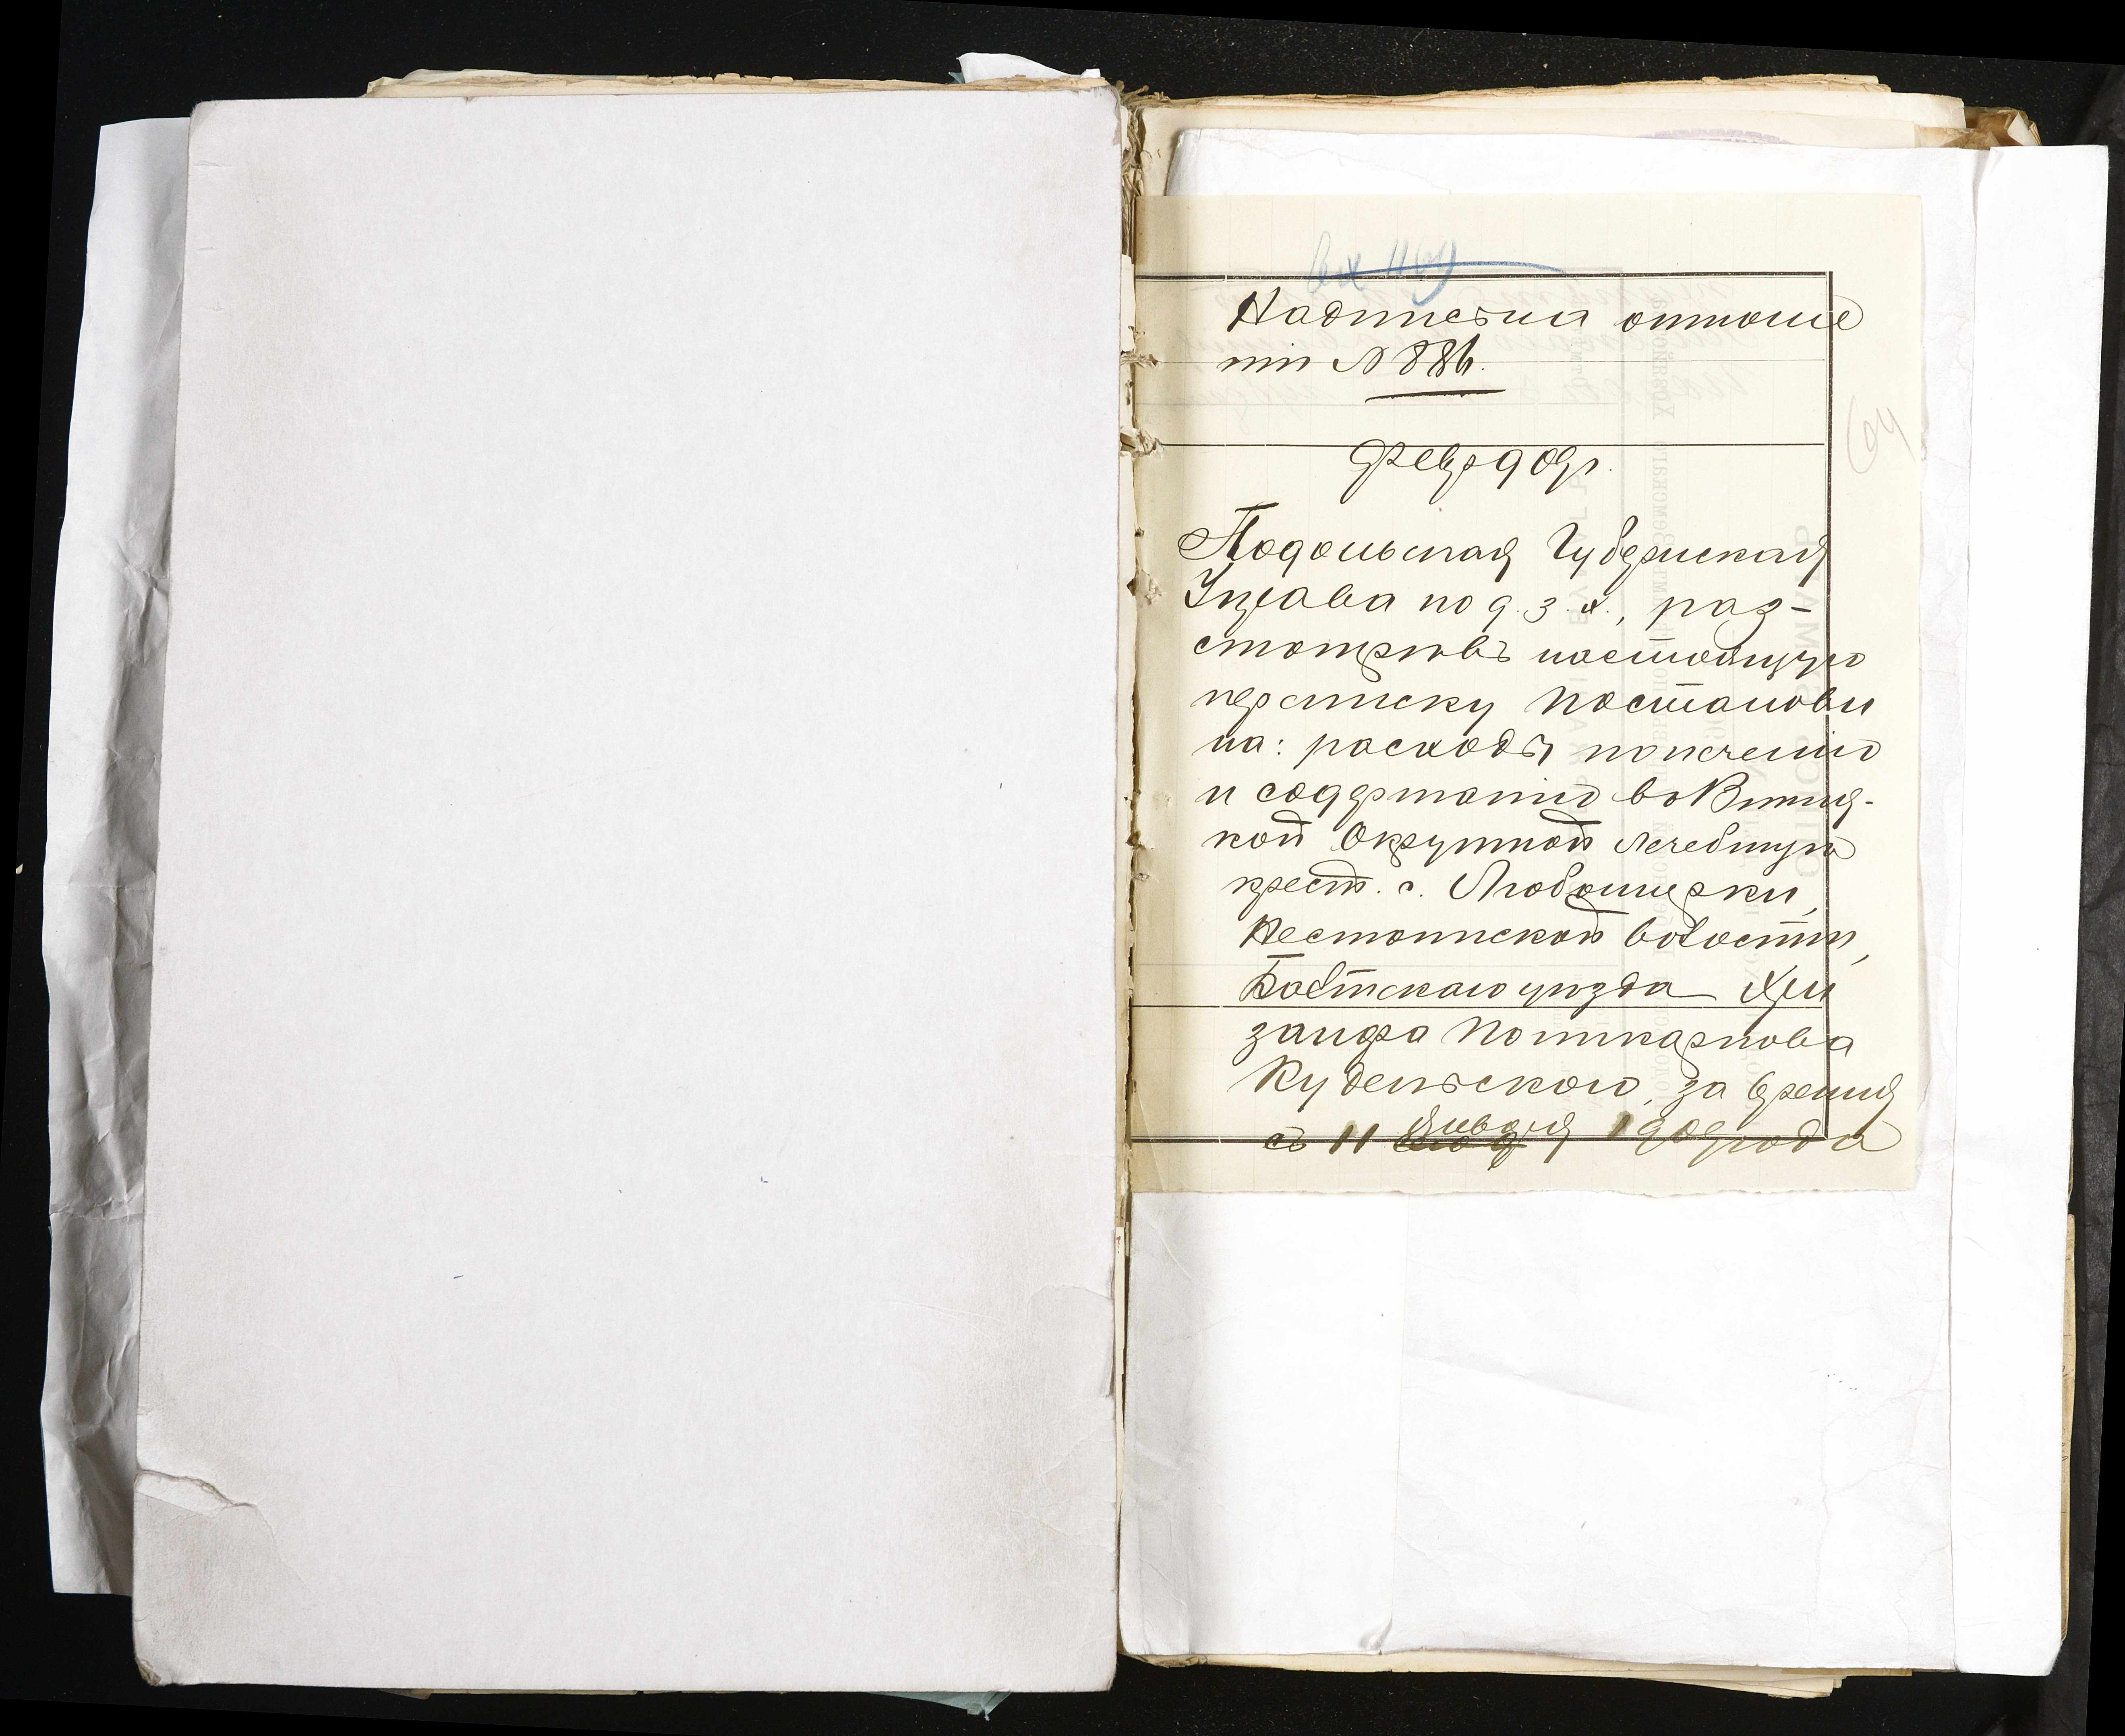 вх 1169
Надписьи отноше
нiи № 886.
64
февр 909 г.
Подольская Губернская
Управа по д. з. х., раз-
смотрѣвъ настоящую
переписку постанови
ла: расходъ по лечению
и содержанiю во Винниц-
кой Окружной лечебнице
крест. с. Любомирки,
Нестоитской волости,
Балтскаго уѣзда Хри
занфа Поликарпова
Кудельскаго, за время
съ 11 Января 1909 года